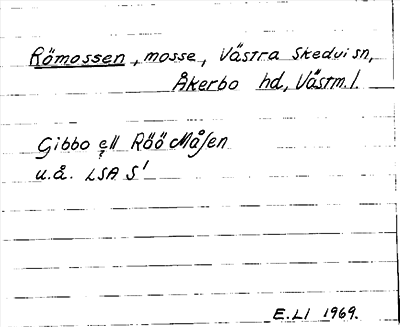 Römossen, mosse, Västra Skedvi sn,
Åkerbo hd, Västm. l.
Gibbo ell Röö Måsen
u.å. LSA S'
E.LI 1969.